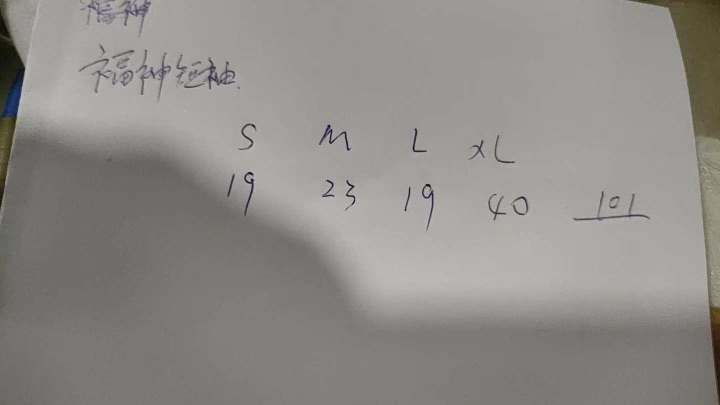 福神
福神短袖.
S M L XL
19 23 19 40 101